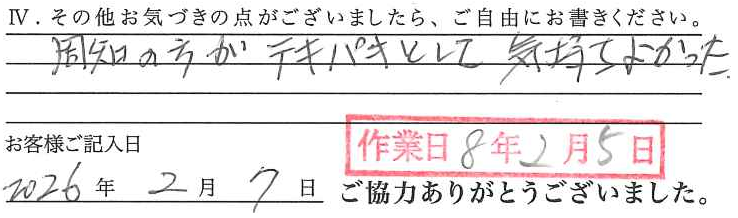 Ⅳ．その他お気づきの点がございましたら、ご自由にお書きください。
周知の方がテキパキとして気持ちよかった
お客様ご記入日
作業日 8年2月5日
2026年 2月 7日 ご協力ありがとうございました。